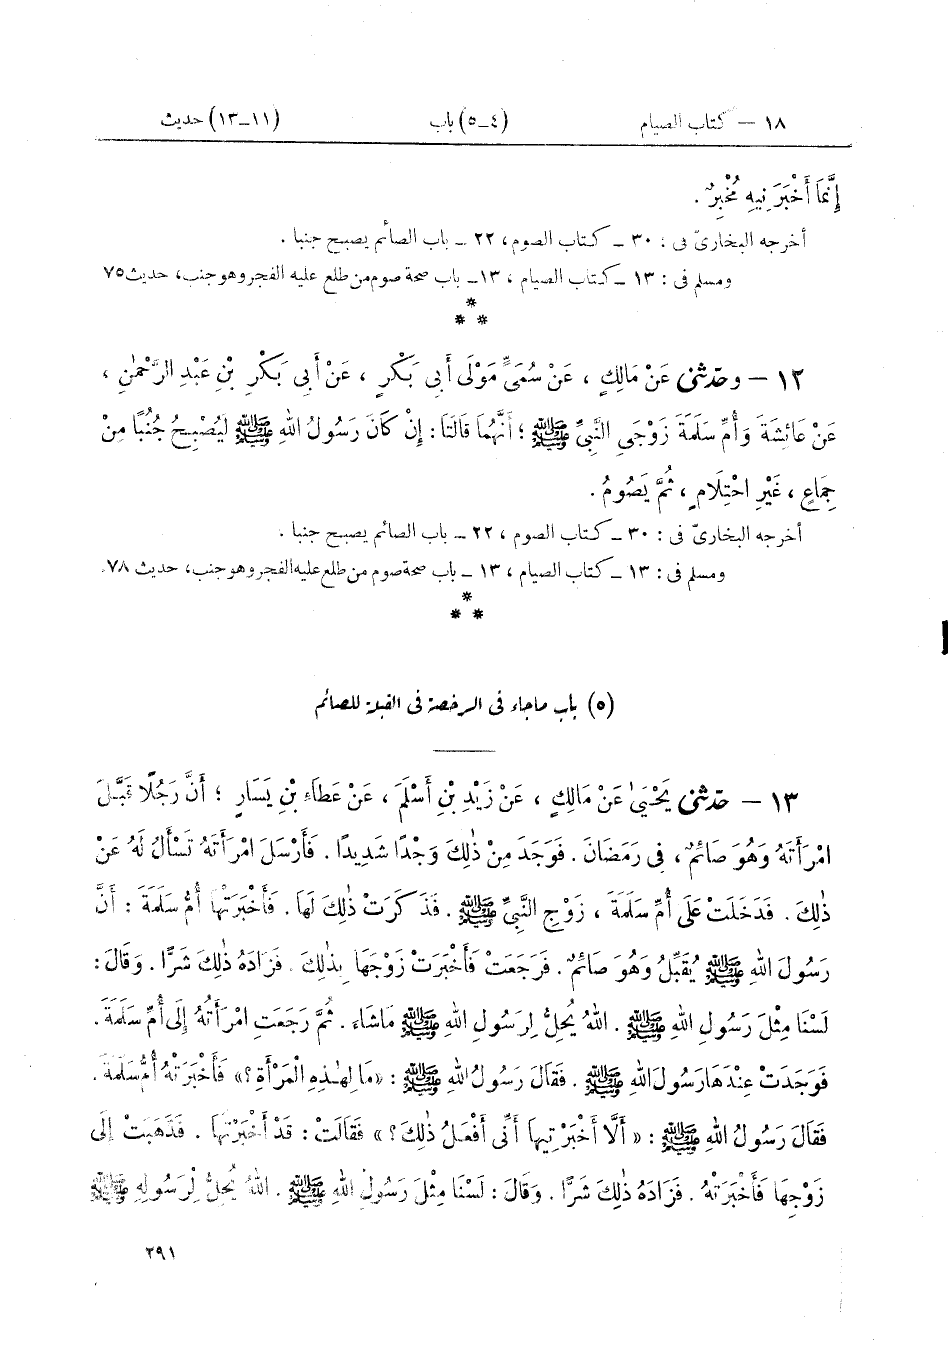 ١٨ — كتاب الصيام (٤ـ٥) باب (١١ـ١٣) حديث
إِنَّمَا أَخْبَرَنِيهِ مُخْبِرٌ .
أخرجه البخارىّ فى : ٣٠ ـ كتاب الصوم ، ٢٢ ـ باب الصائم يصبح جنبا .
ومسلم فى : ١٣ ـ كتاب الصيام ، ١٣ ـ باب صحة صوم من طلع عليه الفجر وهو جنب، حديث ٧٥
*
* *
١٢ — وحدثنى عَنْ مَالِكٍ ، عَنْ سُمَىٍّ مَوْلَى أَبِى بَكْرٍ ، عَنْ أَبِى بَكْرِ بْنِ عَبْدِ الرَّحْمٰنِ ،
عَنْ عَائِشَةَ وَأُمِّ سَلَمَةَ زَوْجَىِ النَّبِىِّ ﷺ ؛ أَنَّهُمَا قَالَتَا : إِنْ كَانَ رَسُولُ اللهِ ﷺ لَيُصْبِحُ جُنُبًا مِنْ
جِمَاعٍ ، غَيْرِ احْتِلَامٍ ، ثُمَّ يَصُومُ .
أخرجه البخارىّ فى : ٣٠ ـ كتاب الصوم ، ٢٢ ـ باب الصائم يصبح جنبا .
ومسلم فى : ١٣ ـ كتاب الصيام ، ١٣ ـ باب صحة صوم من طلع عليه الفجر وهو جنب، حديث ٧٨.
*
* *
(٥) باب ماجاء فى الرخصة فى القبلة للصائم
١٣ — حدثنى يَحْيَىٰ عَنْ مَالِكٍ ، عَنْ زَيْدِ بْنِ أَسْلَمَ ، عَنْ عَطَاءِ بْنِ يَسَارٍ ؛ أَنَّ رَجُلًا قَبَّلَ
امْرَأَتَهُ وَهُوَ صَائِمٌ ، فِى رَمَضَانَ . فَوَجَدَ مِنْ ذٰلِكَ وَجْدًا شَدِيدًا . فَأَرْسَلَ امْرَأَتَهُ تَسْأَلُ لَهُ عَنْ
ذٰلِكَ . فَدَخَلَتْ عَلَى أُمِّ سَلَمَةَ ، زَوْجِ النَّبِىِّ ﷺ . فَذَكَرَتْ ذٰلِكَ لَهَا . فَأَخْبَرَتْهَا أُمُّ سَلَمَةَ : أَنَّ
رَسُولَ اللهِ ﷺ يُقَبِّلُ وَهُوَ صَائِمٌ . فَرَجَعَتْ فَأَخْبَرَتْ زَوْجَهَا بِذٰلِكَ . فَزَادَهُ ذٰلِكَ شَرًّا . وَقَالَ :
لَسْنَا مِثْلَ رَسُولِ اللهِ ﷺ . اللهُ يُحِلُّ لِرَسُولِ اللهِ ﷺ مَاشَاءَ . ثُمَّ رَجَعَتِ امْرَأَتُهُ إِلَى أُمِّ سَلَمَةَ .
فَوَجَدَتْ عِنْدَهَا رَسُولَ اللهِ ﷺ . فَقَالَ رَسُولُ اللهِ ﷺ : «مَا لِهٰذِهِ الْمَرْأَةِ ؟» فَأَخْبَرَتْهُ أُمُّ سَلَمَةَ .
فَقَالَ رَسُولُ اللهِ ﷺ : « أَلَّا أَخْبَرْتِيهَا أَنِّى أَفْعَلُ ذٰلِكَ ؟ » فَقَالَتْ : قَدْ أَخْبَرْتُهَا . فَذَهَبَتْ إِلَى
زَوْجِهَا فَأَخْبَرَتْهُ . فَزَادَهُ ذٰلِكَ شَرًّا . وَقَالَ : لَسْنَا مِثْلَ رَسُولِ اللهِ ﷺ . اللهُ يُحِلُّ لِرَسُولِهِ ﷺ
٢٩١